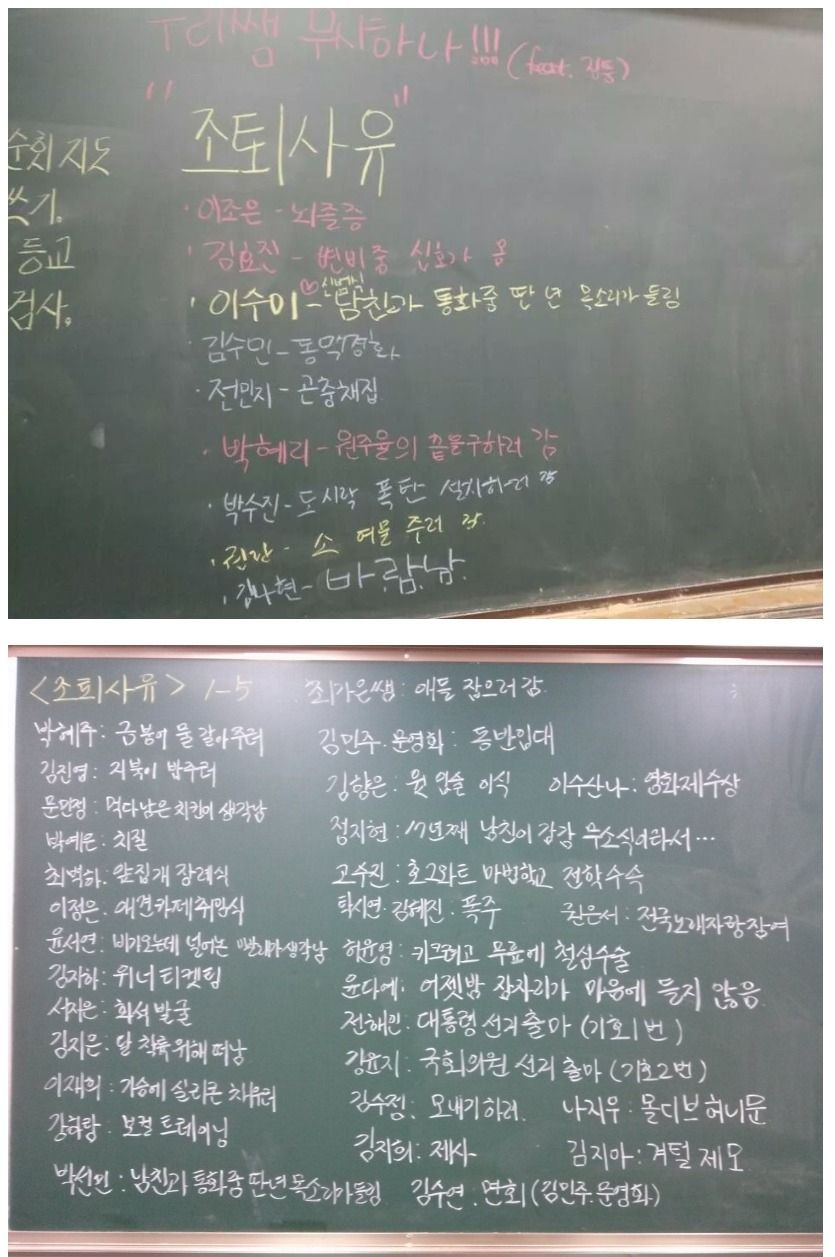 우리쌤 무사하나!!! (feat. 집뚱)
"조퇴사유"
순회지도
쓰기.
등교
검사.
· 이조은 - 뇌졸증
· 김효진 - 변비중 신호가 옴
· 이수미♡ - 남친과 통화중 딴 년 목소리가 들림
· 김수민 - 동맥경화
· 전민지 - 곤충채집
· 박혜리 - 원주율의 끝을구하러 감
· 박수진 - 도시락 폭탄 설치하러 감
소 여물 주러 감
· 김나현 - 바.람.남.
<조퇴사유> 1-5
최가은쌤 : 애들 잡으러 감.
박혜주 : 금붕어 물 갈아주러
김민주. 문영화 : 동반입대
김진영 : 거북이 밥주러
김향은 : 윗 입술 이식 이수산나 : 영화제수상
문민정 : 먹다남은 치킨이 생각남
정지현 : 17년째 남친이 감감 무소식이라서…
박예은 : 치질
고수진 : 호그와트 마법학교 전학수속
최벽하 : 앞집개 장례식
탁시연. 김혜진 : 폭주 권은서 : 전국노래자랑참여
이정은 : 애견카페취임식
윤서연 : 비가오는데 널어논 빨래가생각남
허윤영 : 키크려고 무릎에 철심수술
김자하 : 위너 티켓팅
윤다예 : 어젯밤 잠자리가 마음에 들지 않음
서지은 : 화석 발굴
전해인 : 대통령 선거 출마 (기호1번)
김지은 : 달 착륙 위해 떠남
강윤지 : 국회의원 선거 출마 (기호2번)
이재희 : 가슴에 실리콘 채우러
김수정 : 모내기하러. 나지우 : 몰디브허니문
강하람 : 보컬 트레이닝
김지희 : 제사 김지아 : 겨털 제모
박선민 : 남친과 통화중 딴년 목소리가들림
김수연 : 면회 (김민주.문영화)